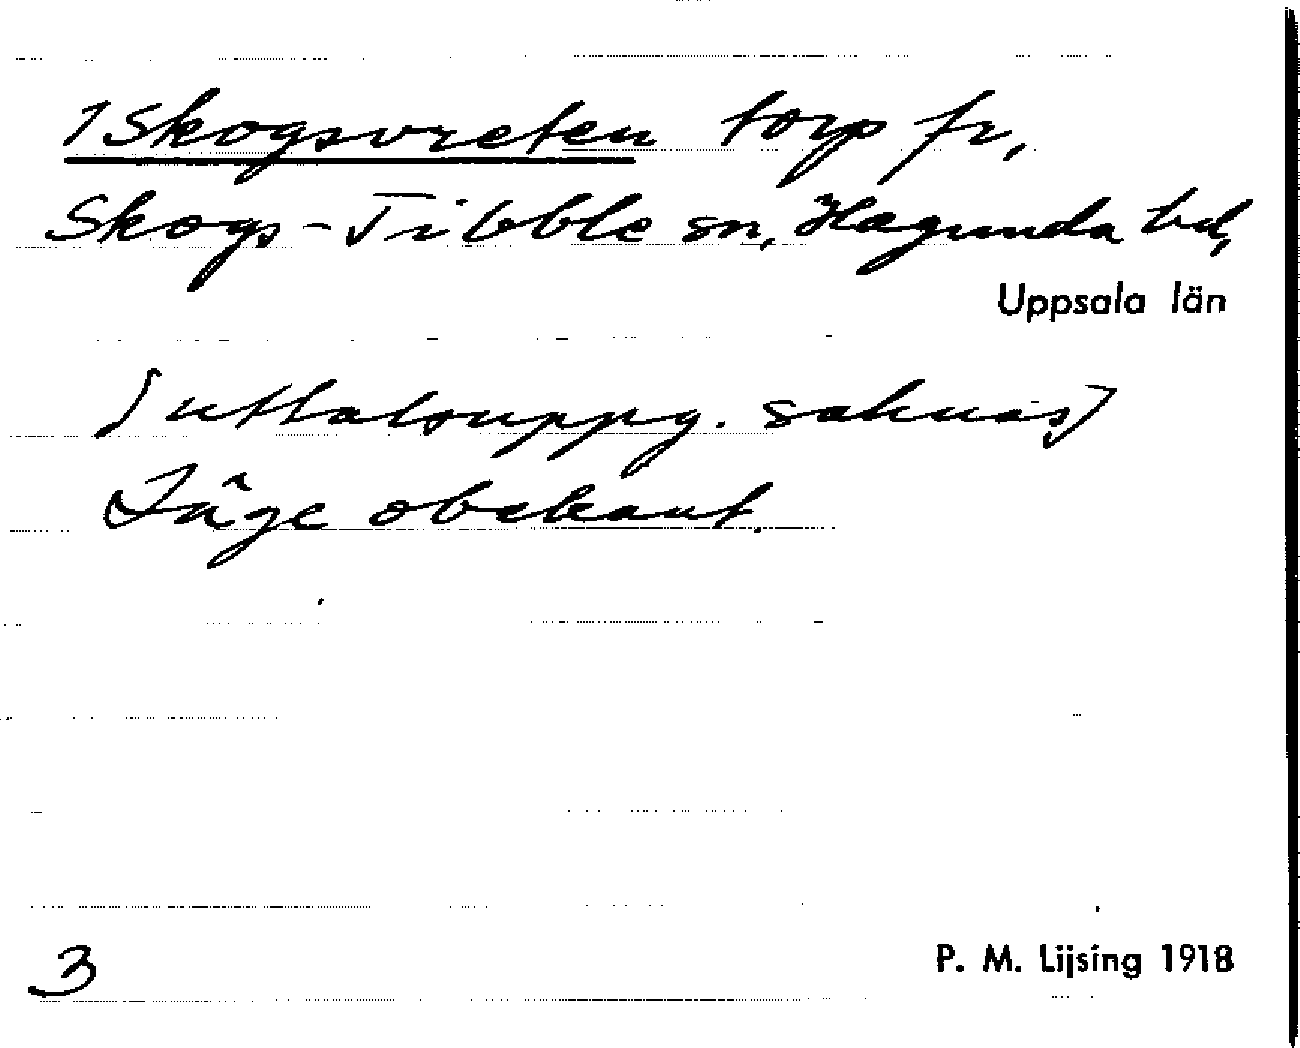 1 Skogsvreten torp fr,
Skogs-Tibble sn, Hagunda hd,
Uppsala län
[uttalsuppg. saknas]
Läge obekant.
3
P. M. Lijsing 1918